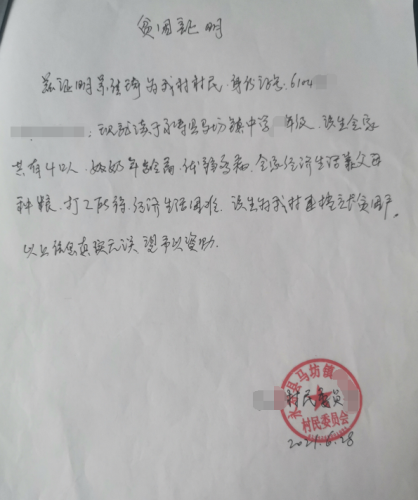 贫困证明
兹证明苏佳琦为我村村民,身份证号:610
现就读于永寿县马坊镇中学 年级,该生全家
共有4口人,奶奶年龄高,体弱多病,全家经济生活靠父母
种粮,打工所得,经济生活困难。该生为我村建档立卡贫困户。
以上信息真实无误 望予以资助。
永 县马坊镇
村民委员
村民委员会
2021.6.28